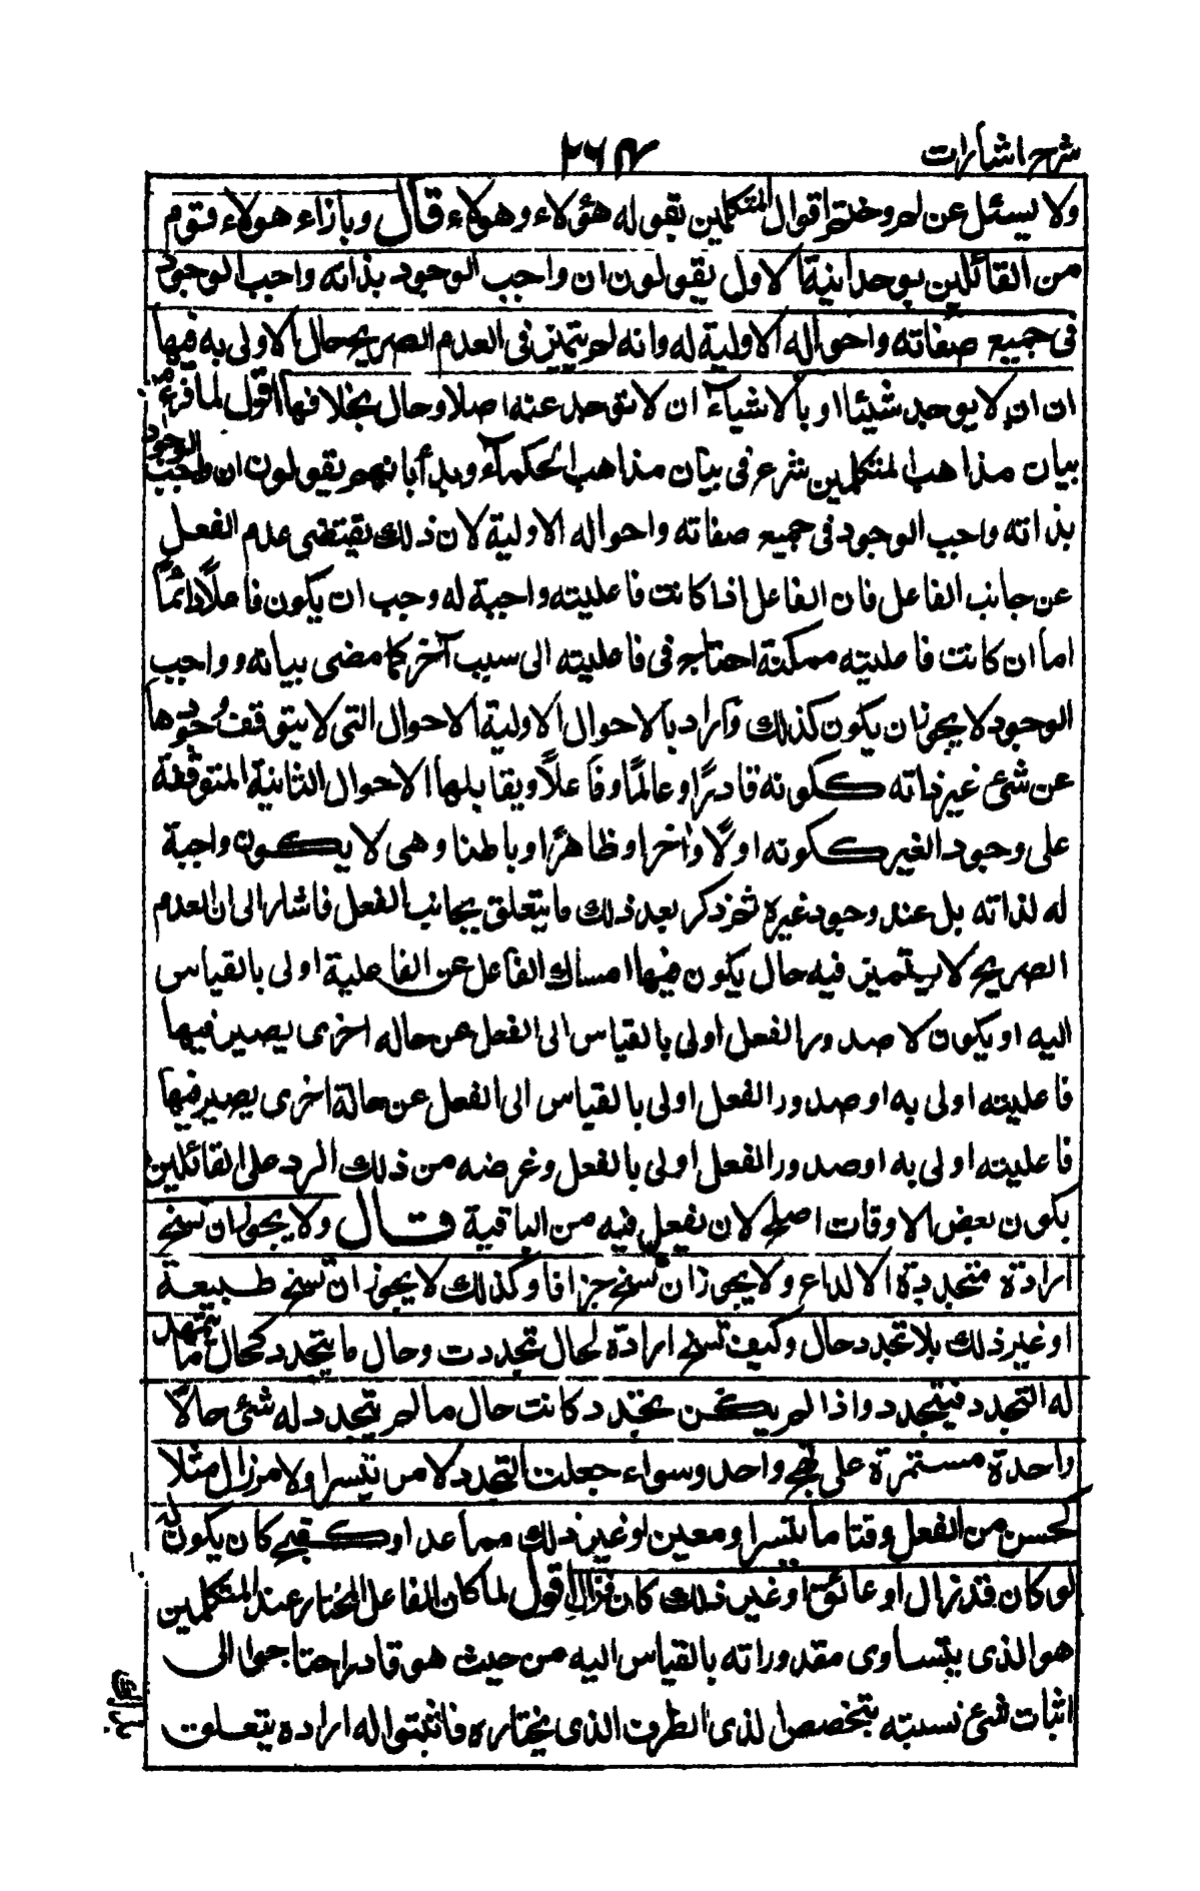 شرح اشارات
٢٦٣
ولا يسئل عن لم وختم اقوال المتكلمين بقوله هؤلاء وهولاء قال وبازاء هولاء قوم
من القائلين بوحدانية الاول يقولون ان واجب الوجود بذاته واجب الوجود
فى جميع صفاته واحواله الاولية له وانه لم يتميز فى العدم الصريح حال الاولى به فيها
ان لا يوجد شيئا او بالاشياء ان لا توجد عنه اصلا وحال بخلافها اقول لما فرغ من
بيان مذاهب المتكلمين شرع فى بيان مذاهب الحكماء وبدأ بانهم يقولون ان واجب الوجود
بذاته واجب الوجود فى جميع صفاته واحواله الاولية لان ذلك يقتضى عدم الفعل
عن جانب الفاعل فان الفاعل اذا كانت فاعليته واجبة له وجب ان يكون فاعلًا دائمًا
اما ان كانت فاعليته ممكنة احتاج فى فاعليته الى سبب آخر كما مضى بيانه وواجب
الوجود لا يجوز ان يكون كذلك واراد بالاحوال الاولية الاحوال التى لا يتوقف وجودها
عن شئ غير ذاته ككونه قادرًا وعالمًا وفاعلًا ويقابلها الاحوال الثانية المتوقفة
على وجود الغير ككونه اولًا وآخرا وظاهرًا وباطنا وهى لا يكون واجبة
له لذاته بل عند وجود غيره ثم ذكر بعد ذلك ما يتعلق بجانب الفعل فاشار الى ان العدم
الصريح لا يتميز فيه حال يكون فيها امساك الفاعل عن الفاعلية اولى بالقياس
اليه او يكون لا صدور الفعل اولى بالقياس الى الفعل عن حاله اخرى يصير فيها
فاعليته اولى به او صدور الفعل اولى بالقياس الى الفعل عن حالة اخرى يصير فيها
فاعليته اولى به او صدور الفعل اولى بالفعل وغرضه من ذلك الرد على القائلين
بكون بعض الاوقات اصلح لان يفعل فيه من الباقية قال ولا يجوز ان تسنح
ارادة متجددة الا لداع ولا يجوز ان تسنح جزافا وكذلك لا يجوز ان تسنح طبيعة
او غير ذلك بلا تجدد حال وكيف تسنح ارادة لحال تجددت وحال ما يتجدد كحال ما يتمهد
له التجدد فيتجدد واذا لم يكن تجدد كانت حال ما لم يتجدد له شئ حالًا
واحدة مستمرة على نهج واحد وسواء جعلت التجدد لامر تيسر او لامر زال مثلا
لحسن من الفعل وقتا ما يتيسر او معين او غير ذلك مما عد او كقبح كان يكون له
لو كان قد زال او عائق او غير ذلك كان فزال اقول لما كان الفاعل المختار عند المتكلمين
هو الذى يتساوى مقدوراته بالقياس اليه من حيث هو قادر احتاجوا الى
اثبات شئ نسبته يتخصص الذى الطرف الذى يختاره فاثبتوا له ارادة يتعلق